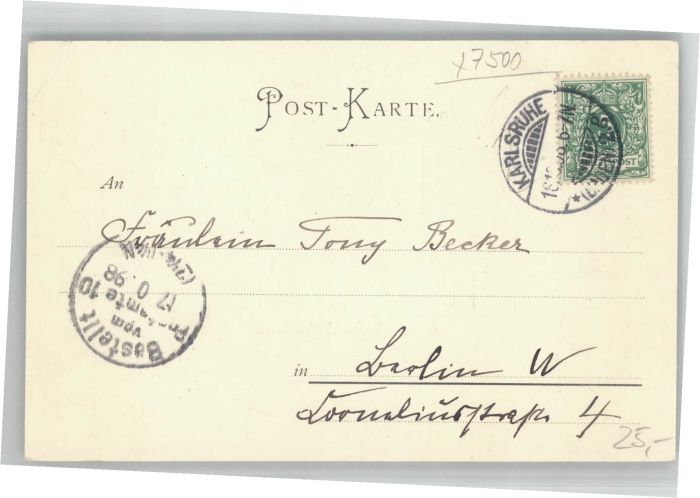 x7500
POST-KARTE.
KARLSRUHE
6-7N
POST
An
Fräulein Tony Becker
Bestellt
vom
Postamte 10
98
in Berlin W
Corneliusstraße 4
25,-